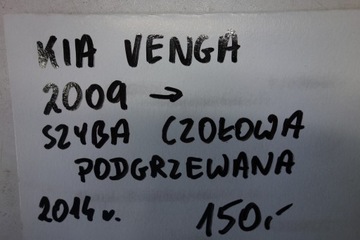 KIA VENGA
2009 →
SZYBA CZOŁOWA
PODGRZEWANA
2014 r. 150,-